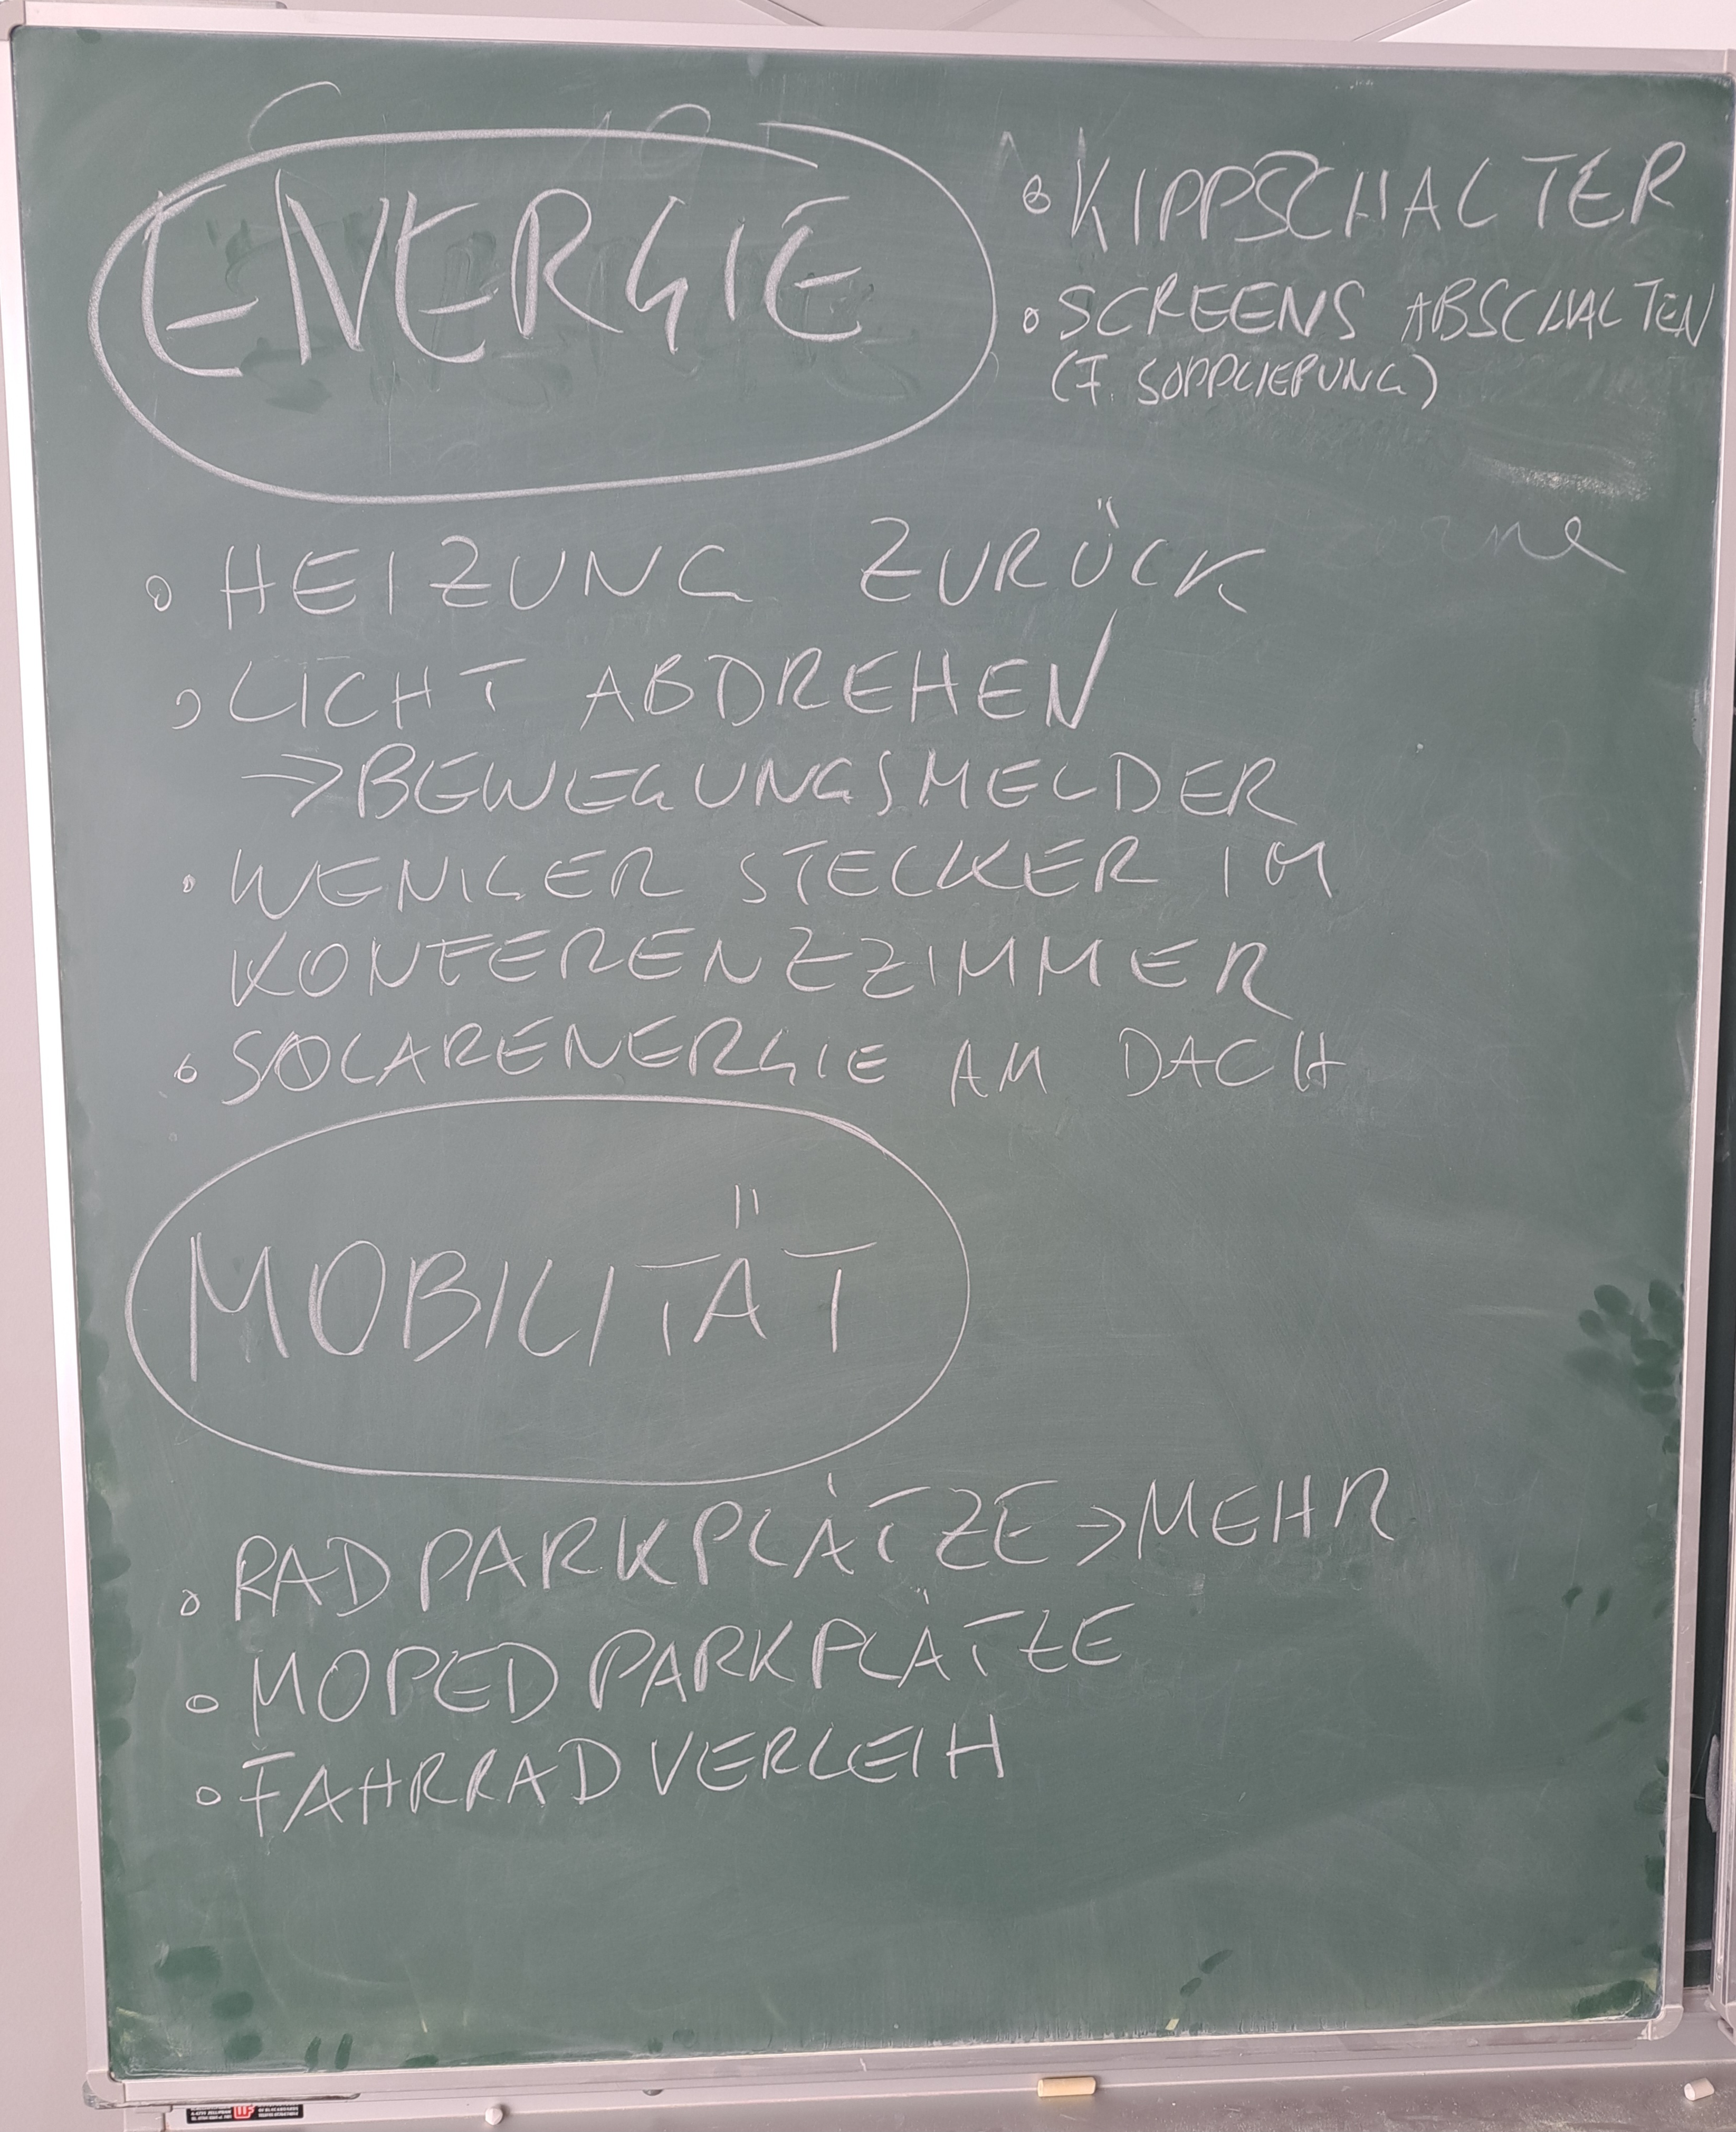 ENERGIE
• KIPPSCHALTER
• SCREENS ABSCHALTEN
(F. SUPPLIERUNG)
• HEIZUNG ZURÜCK
• LICHT ABDREHEN
→ BEWEGUNGSMELDER
• WENIGER STECKER IM
KONFERENZZIMMER
• SOLARENERGIE AM DACH
MOBILITÄT
• RADPARKPLÄTZE → MEHR
• MOPEDPARKPLÄTZE
• FAHRRADVERLEIH